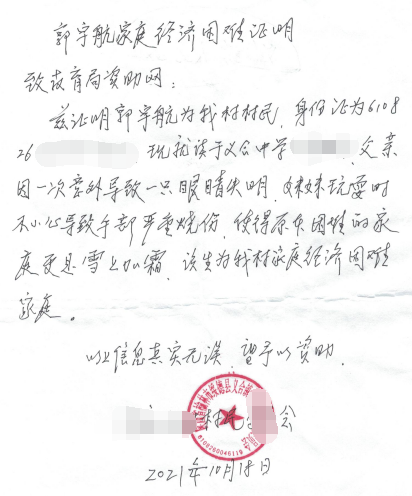 郭宇航家庭经济困难证明
致教育局资助网：
兹证明郭宇航为我村村民，身份证为6108
26 现就读于义合中学 父亲
因一次意外导致一只眼睛失明，妹妹玩耍时
不小心导致手部严重烧伤，使得原本困难的家
庭更是雪上加霜，该生为我村家庭经济困难
家庭。
以上信息真实无误，望予以资助。
村 会
2021年10月18日